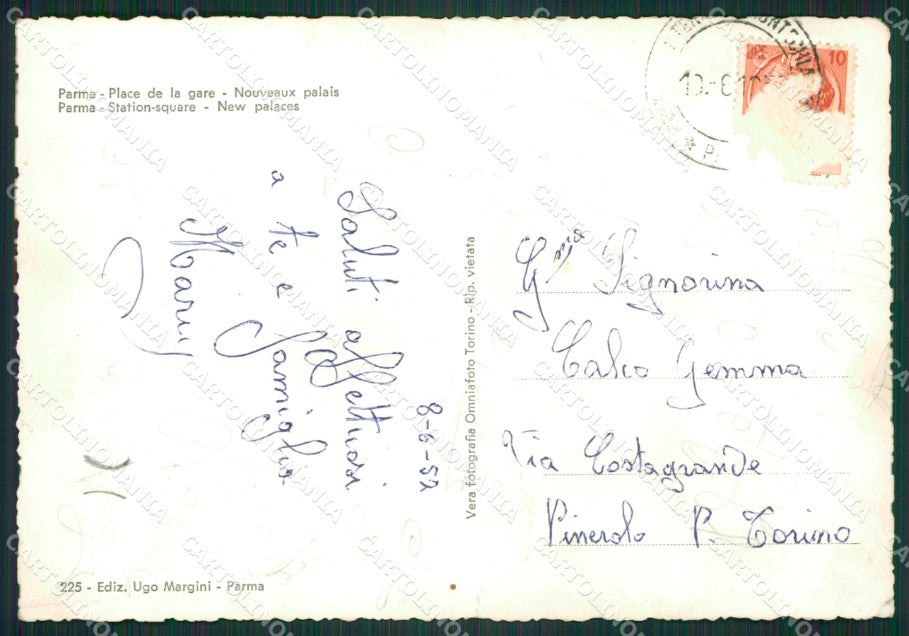 Parma - Place de la gare - Nouveaux palais
Parma - Station-square - New palaces
8-6-57
Saluti affettuosi
a te e famiglia
Mary
225 - Ediz. Ugo Margini - Parma
Vera fotografia Omniafoto Torino - Rip. vietata
10
G.ma Signorina
Calco Gemma
Via Costagrande
Pinerolo P. Torino
CARTOLINOMANIA